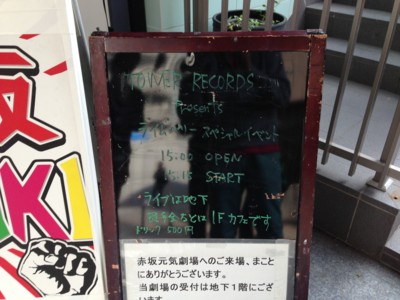 TOWER RECORDS
Presents
スペシャルイベント
15:00 OPEN
15:15 START
・ライブは地下
1Fカフェです
ドリンク500円
赤坂元気劇場へのご来場、まこと
にありがとうございます。
当劇場の受付は地下１階にござ
います。
坂
KI